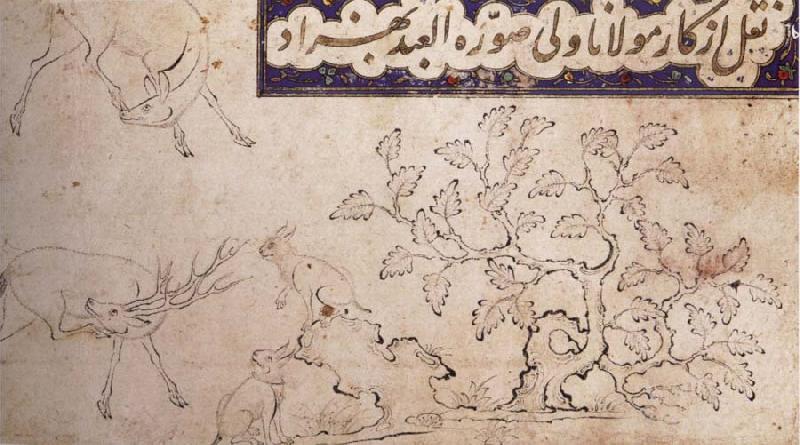 نقل از کار مولانا ولی صوّره العبد بهزاد